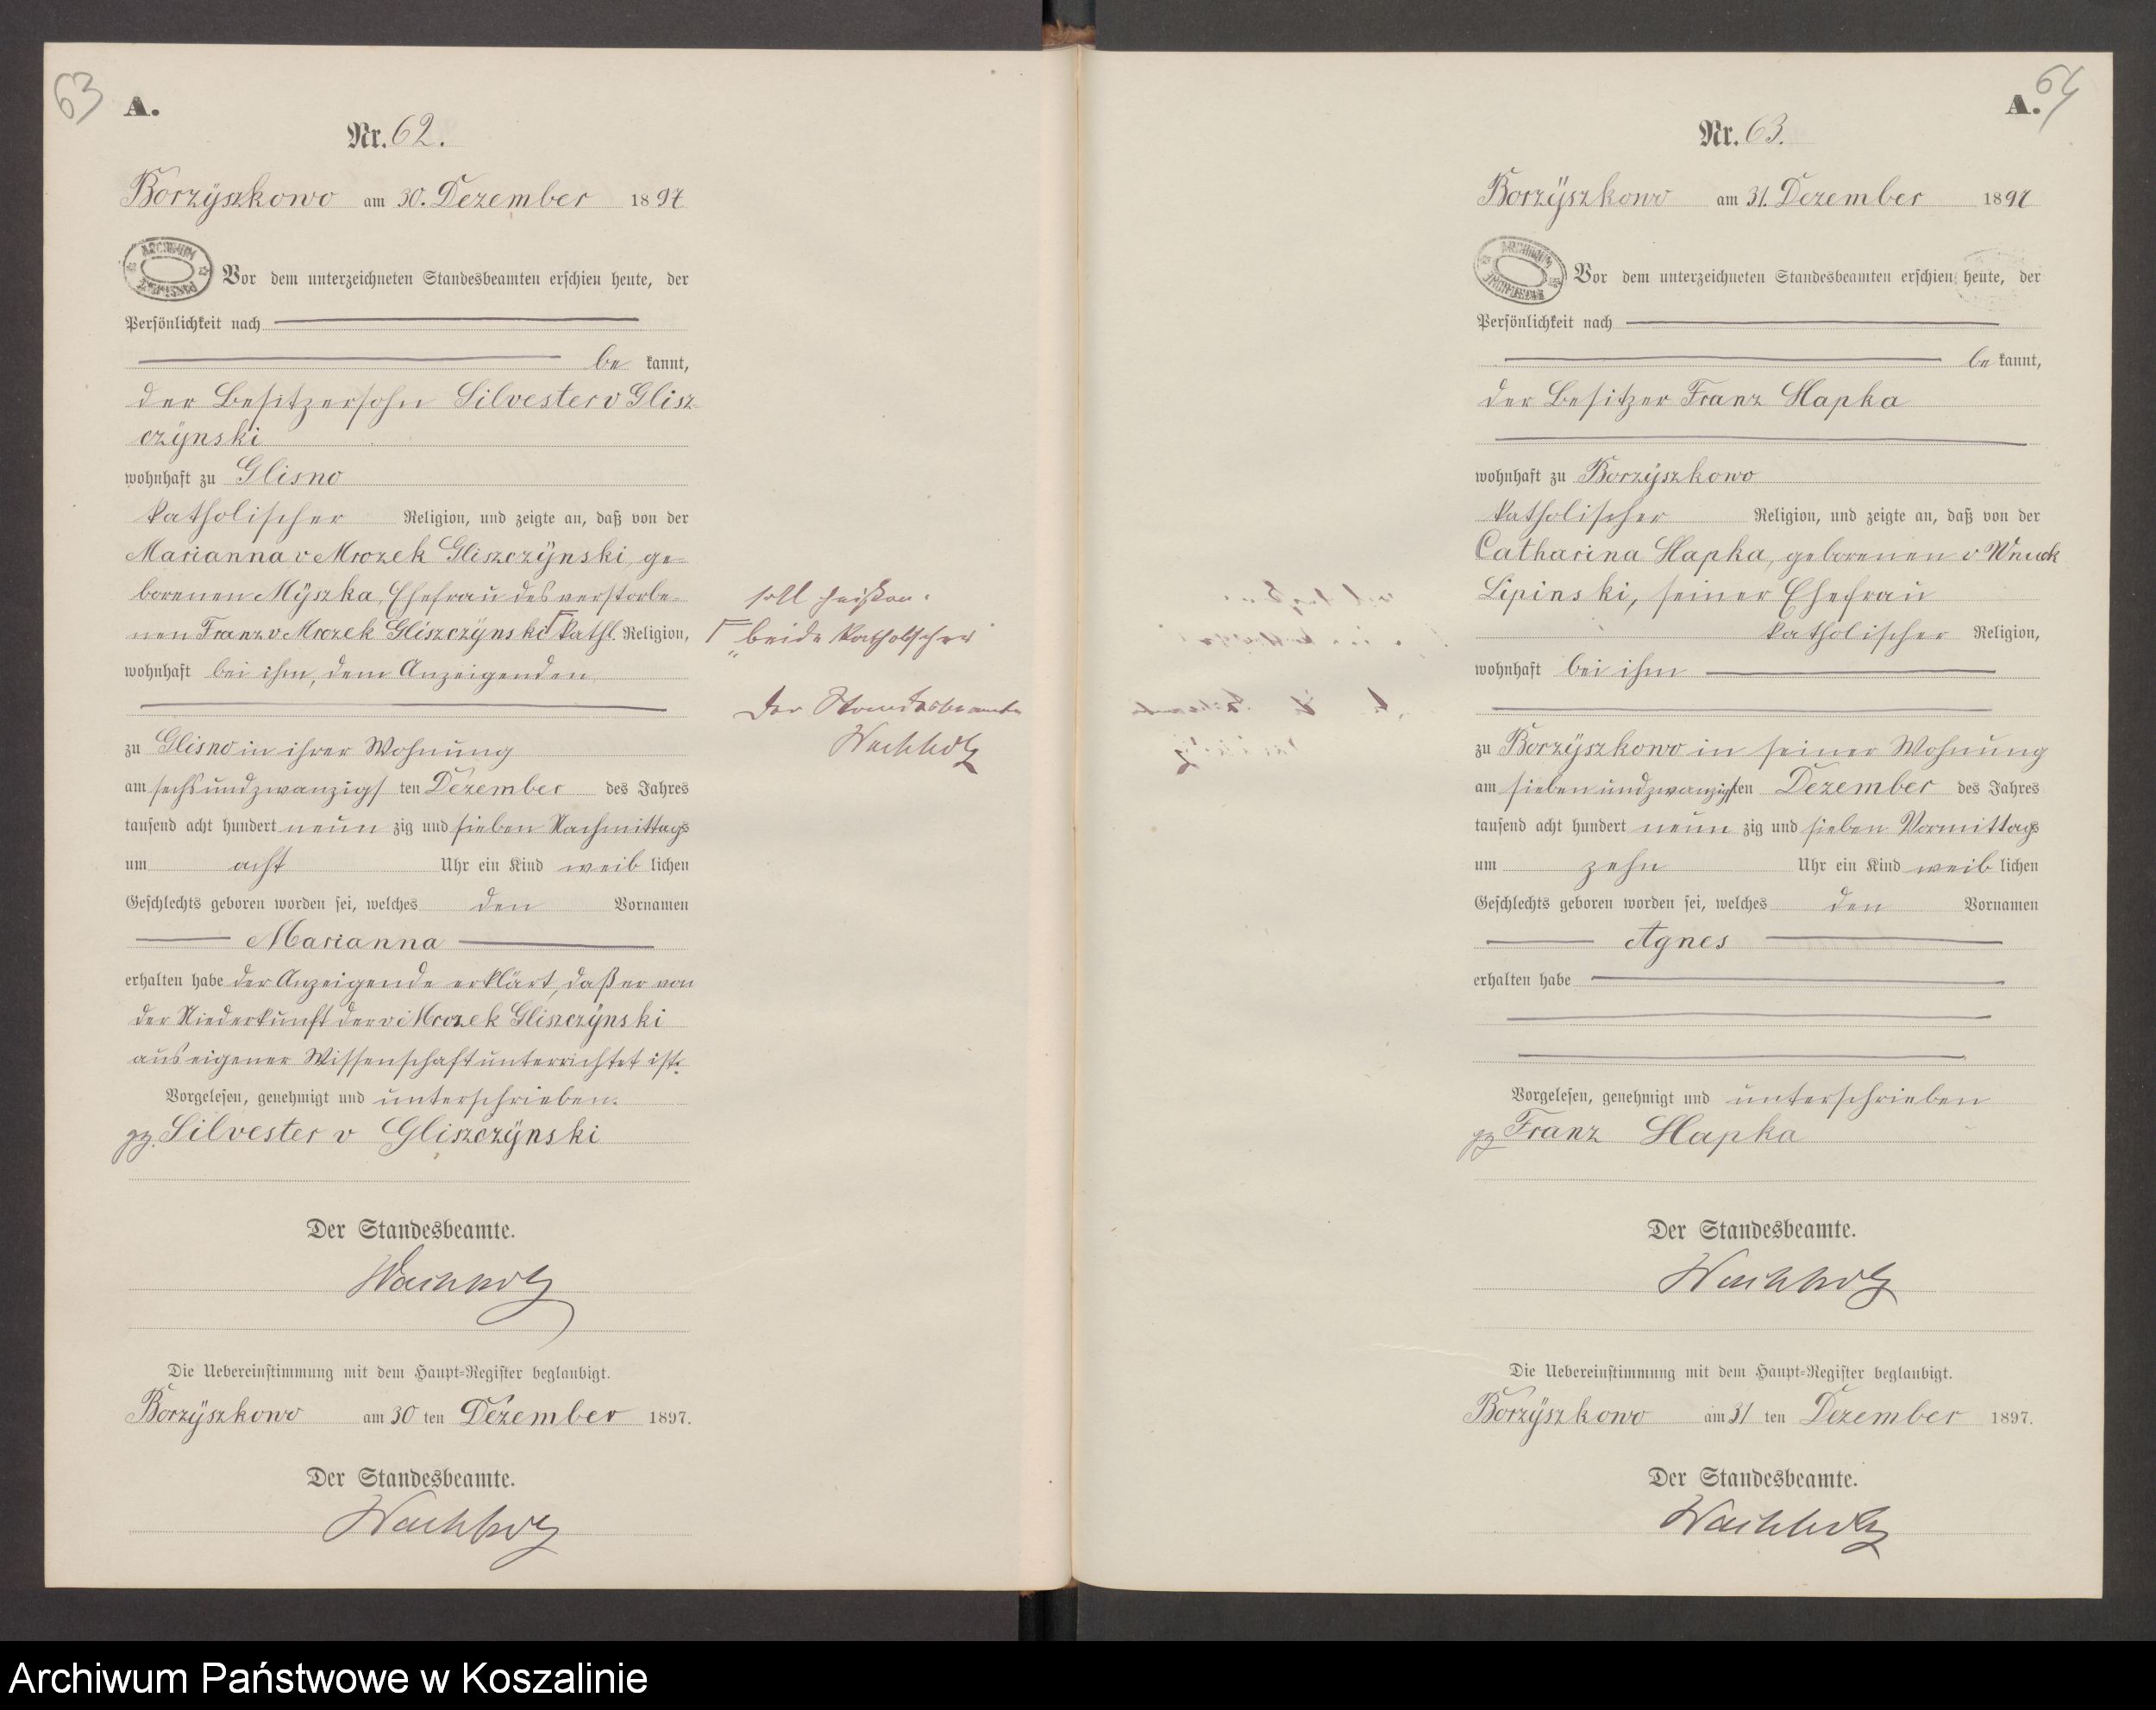 63
A.
Nr. 62.
Borzÿszkowo am 30. Dezember 1897
Vor dem unterzeichneten Standesbeamten erschien heute, der
Persönlichkeit nach
be kannt,
der Besitzersohn Silvester v Glisz
czÿnski
wohnhaft zu Glisno
katholischer Religion, und zeigte an, daß von der
Marianna v Mrozek Gliszczÿnski, ge-
borenen Mÿszka, Ehefrau des verstorbe-
nen Franz v Mrozek Gliszczÿnski kathl. Religion,
wohnhaft bei ihm, dem Anzeigenden,
zu Glisno in ihrer Wohnung
am sechsundzwanzigs ten Dezember des Jahres
tausend acht hundert neun zig und sieben Nachmittags
um acht Uhr ein Kind weib lichen
Geschlechts geboren worden sei, welches den Vornamen
Marianna
erhalten habe der Anzeigende erklärt, daß er von
der Niederkunft der v Mrozek Gliszczÿnski
aus eigener Wissenschaft unterrichtet ist.
Vorgelesen, genehmigt und unterschrieben.
gz. Silvester v Gliszczÿnski
Der Standesbeamte.
Wachholz
Die Uebereinstimmung mit dem Haupt-Register beglaubigt.
Borzÿszkowo am 30 ten Dezember 1897.
Der Standesbeamte.
Wachholz
soll heißen:
beide katholischer
Der Standesbeamte
Wachholz
64
A.
Nr. 63.
Borzÿszkowo am 31. Dezember 1897
ARCHIWUM
Vor dem unterzeichneten Standesbeamten erschien heute, der
Persönlichkeit nach
be kannt,
der Besitzer Franz Slapka
wohnhaft zu Borzÿszkowo
katholischer Religion, und zeigte an, daß von der
Catharina Slapka, geborenen v Wnuck
Lipinski, seiner Ehefrau
katholischer Religion,
wohnhaft bei ihm
zu Borzÿszkowo in seiner Wohnung
am siebenundzwanzigsten Dezember des Jahres
tausend acht hundert neun zig und sieben Vormittags
um zehn Uhr ein Kind weib lichen
Geschlechts geboren worden sei, welches den Vornamen
Agnes
erhalten habe
Vorgelesen, genehmigt und unterschrieben
gz Franz Slapka
Der Standesbeamte.
Wachholz
Die Uebereinstimmung mit dem Haupt-Register beglaubigt.
Borzÿszkowo am 31 ten Dezember 1897.
Der Standesbeamte.
Wachholz
Archiwum Państwowe w Koszalinie